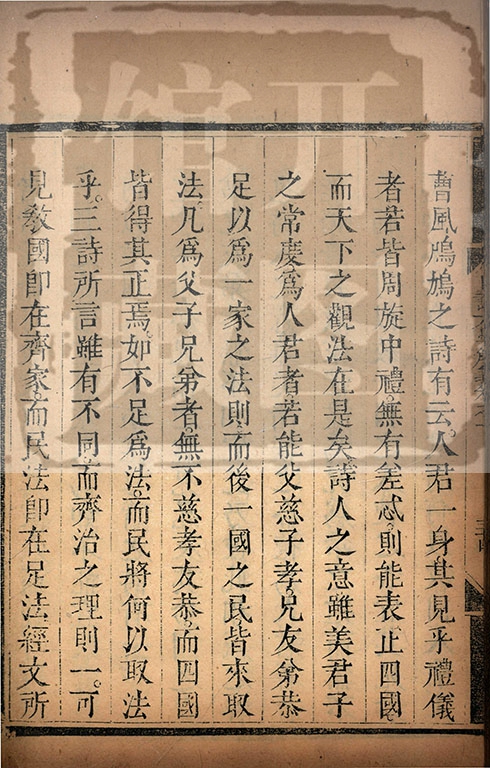 曹風鳲鳩之詩有云。人君一身其見乎禮儀
者。若皆周旋中禮。無有差忒。則能表正四國。
而天下之觀法在是矣。詩人之意雖美君子
之常度。爲人君者。若能父慈子孝。兄友弟恭
足以爲一家之法則。而後一國之民皆來取
法。凡爲父子兄弟者。無不慈孝友恭。而四國
皆得其正焉。如不足爲法。而民將何以取法
乎。三詩所言雖有不同。而齊治之理則一。可
見教國卽在齊家。而民法卽在足法。經文所